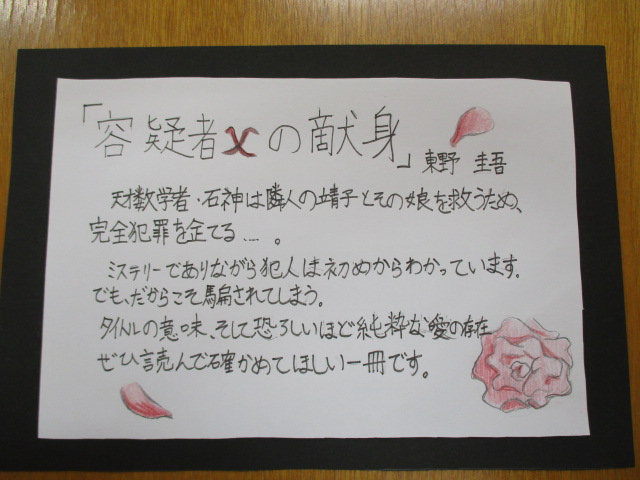 「容疑者Xの献身」東野 圭吾
天才数学者・石神は隣人の靖子とその娘を救うため、
完全犯罪を企てる……。
ミステリーでありながら犯人は初めからわかっています。
でも、だからこそ騙されてしまう。
タイトルの意味、そして恐ろしいほど純粋な愛の存在
ぜひ読んで確かめてほしい一冊です。